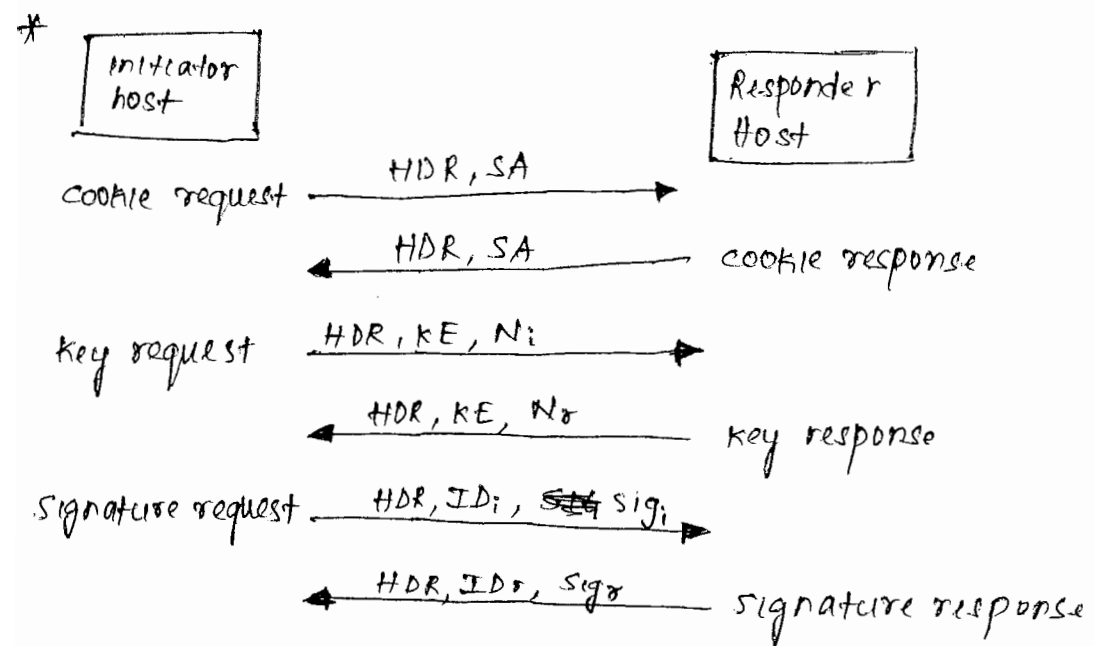 *
Initiator
host
Responder
Host
HDR, SA
cookie request
HDR, SA
cookie response
HDR, KE, Ni
Key request
HDR, KE, Nr
Key response
Signature request HDR, IDi, Sigi
HDR, IDr, Sigr
Signature response